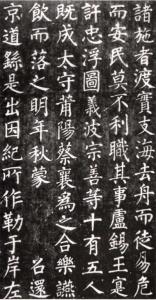 諸施者渡實支海去舟而徙易危
而安民莫不利職其事盧錫王寔
許忠浮圖義波宗善等十有五人
既成太守莆陽蔡襄為之合樂讌
飲而落之明年秋蒙　召還
京道繇是出因紀所作勒于岸左